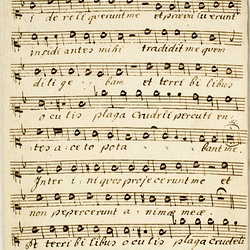 i de reli querunt me et præva luerunt
insidi antes mihi tradidit me quem
dili ge bam et terri bi libus
o cu lis plaga crudeli percuti en,
tes a ce to pota bant me.
Inter i ni quos projecerunt me et
non pepercerunt a nimæ meæ.
et terri bi libus o cu lis plaga crudeli